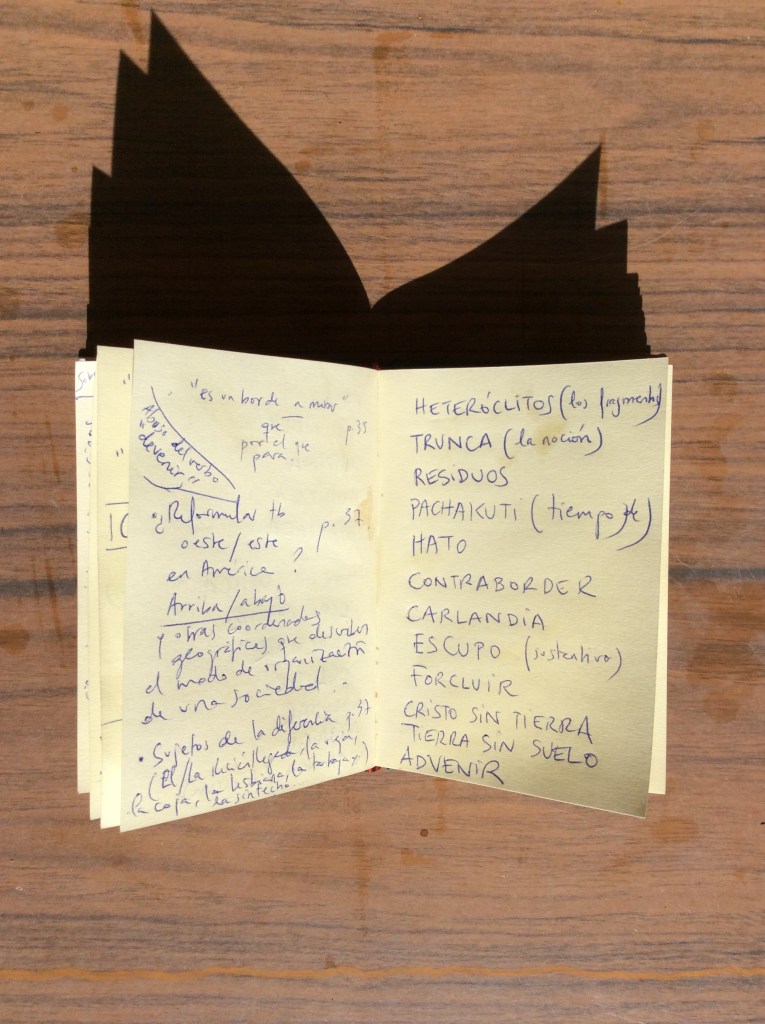 "es un borde a mirar"
que
por el que
para.
p. 35
Abajo del verbo
"devenir"
¿Reformular tb
oeste/este
en América ?
p. 37
Arriba/abajo
y otras coordenadas
geográficas que describen
el modo de organización
de una sociedad...
• Sujetos de la diferencia p. 37
(El/la recién llegado, la
la coja, la lesbiana, la
la sintecho.
HETERÓCLITOS (los fragmentos)
TRUNCA (la noción)
RESIDUOS
PACHAKUTI (tiempo de)
HATO
CONTRABORDER
CARLANDIA
ESCUPO (sustantivo)
FORCLUIR
CRISTO SIN TIERRA
TIERRA SIN SUELO
ADVENIR